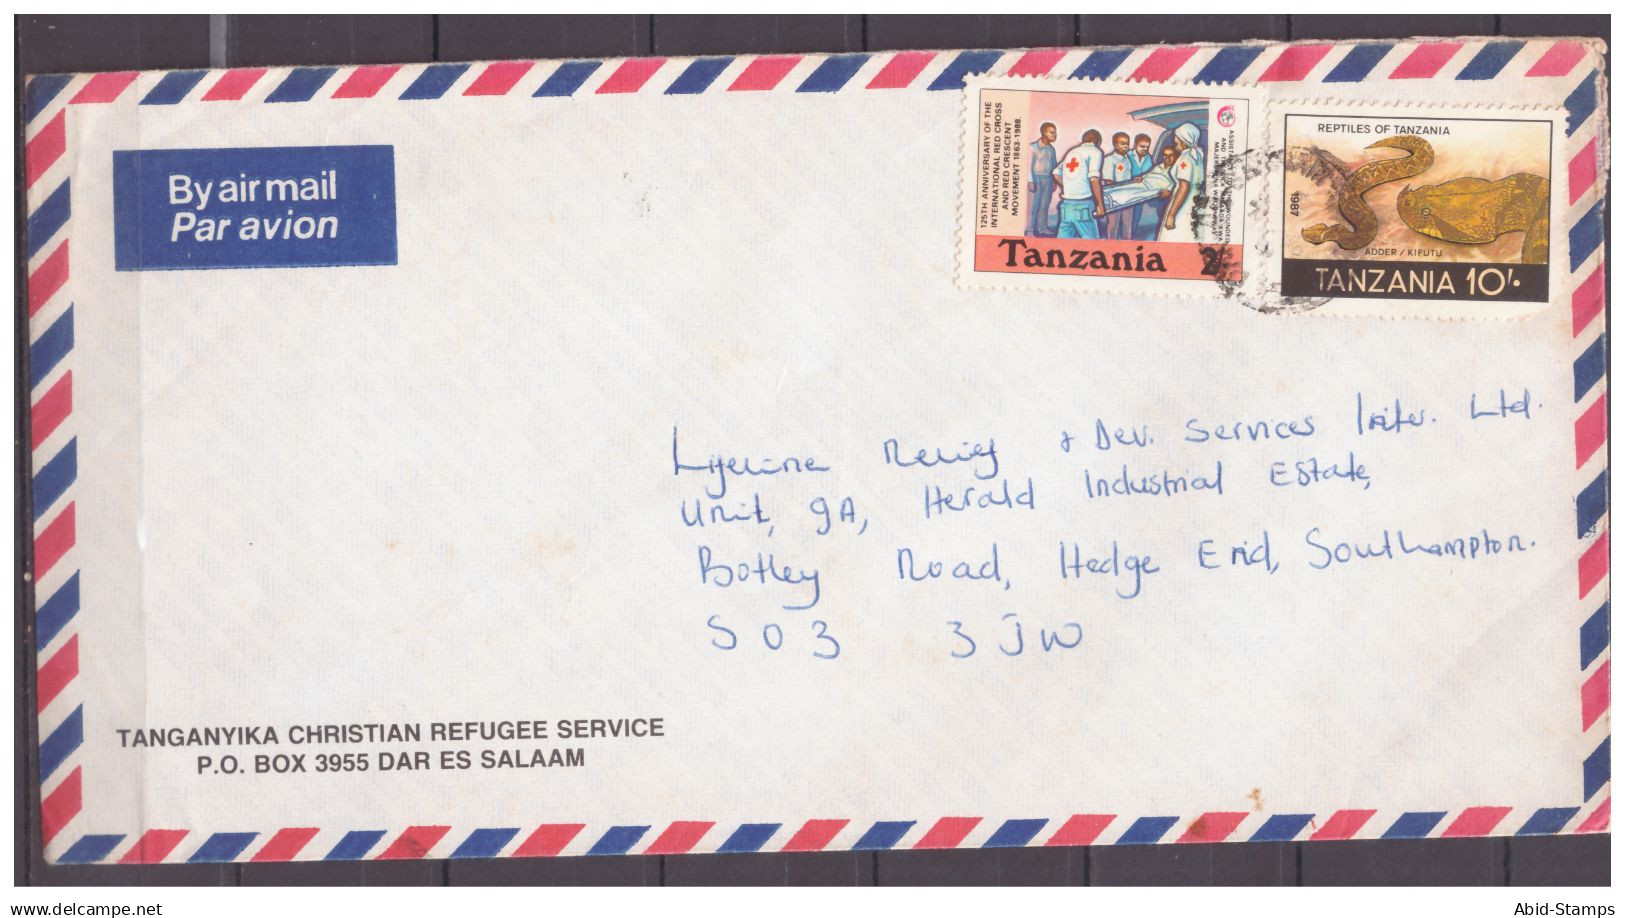 By air mail
Par avion
125TH ANNIVERSARY OF THE
INTERNATIONAL RED CROSS
AND RED CRESCENT
MOVEMENT 1863-1988.
Tanzania 2/-
REPTILES OF TANZANIA
1987
ADDER / KIFUTU
TANZANIA 10/-
Lifeline Relief & Dev. Services Inter. Ltd.
Unit, 9A, Herald Industrial Estate,
Botley Road, Hedge End, Southampton.
SO3 3JW
TANGANYIKA CHRISTIAN REFUGEE SERVICE
P.O. BOX 3955 DAR ES SALAAM
www.delcampe.net
Abid-Stamps